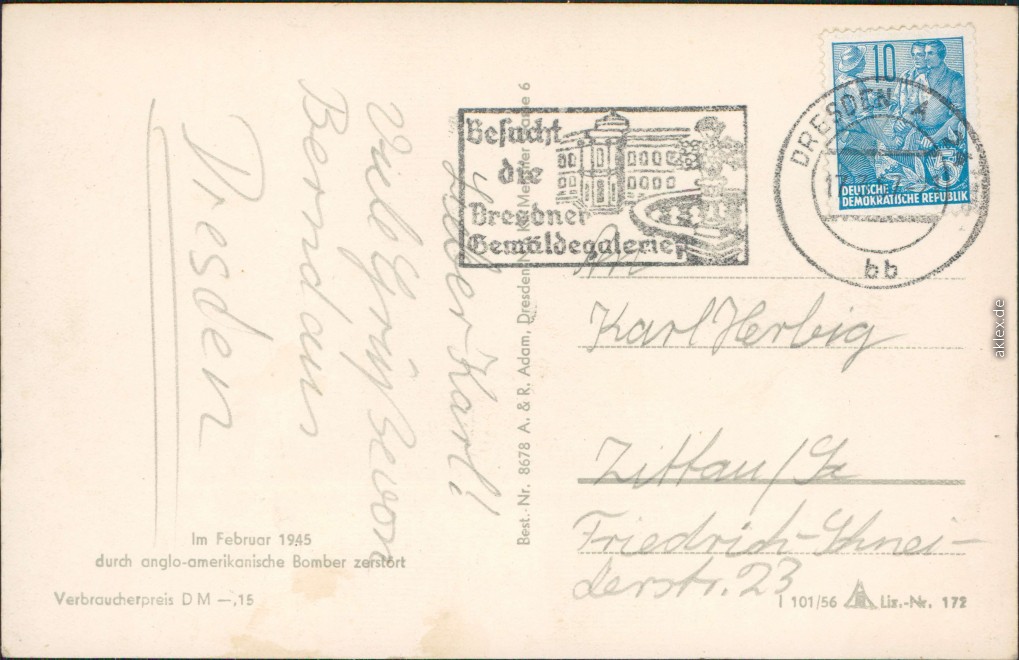 Lieber Karl!
Viele Grüße von
Berndam
Dresden
Im Februar 1945
durch anglo-amerikanische Bomber zerstört
Verbraucherpreis DM —,15
Best.-Nr. 8678 A. & R. Adam, Dresden
6
Besucht
die
Dresdner
Gemäldegalerie
10
DEUTSCHE
DEMOKRATISCHE REPUBLIK
DRESDEN A
bb
Karl Herbig
Zittau/Sa
Friedrich-Schnei-
derstr. 23
I 101/56 Liz.-Nr. 172
aklex.de